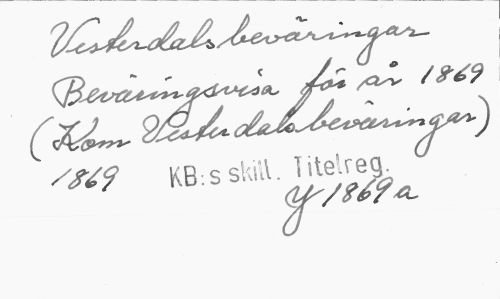 Vesterdalsbeväringar
Beväringsvisa för år 1869
(Kom Vesterdalsbeväringar)
1869 KB:s skill. Titelreg.
Y 1869 a